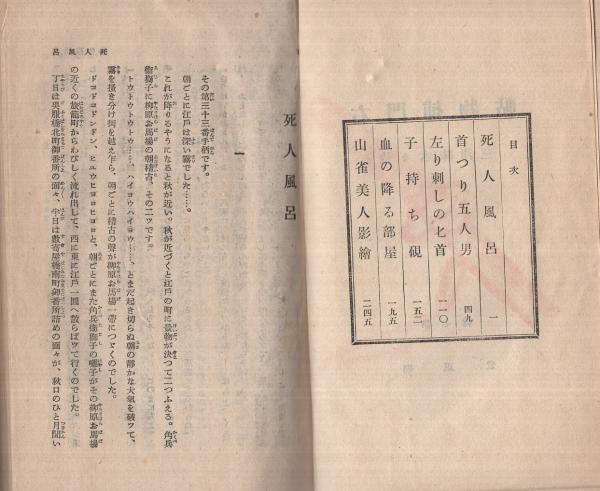 目次
死人風呂 一
首つり五人男 四九
左り刺しの匕首 一一〇
子持ち硯 一五二
血の降る部屋 一九五
山雀美人影繪 二四五
死人風呂
死人風呂
一
その第三十三番手柄です。
朝ごとに江戸は深い霧でした……。
これが降りるそうになると秋が近い。秋が近づくと江戸の町に景物が決つて二つふえる。角兵
衞獅子に柳原お馬場の朝稽古、その二ツです。
トウトウトウトウ……、ハイヨウハイヨウ……、とまだ起き切らぬ朝の靜かな大氣を破ツて、
霧を搔き分け街を越え乍ら、朝ごとに稽古の聲が柳原お馬場一帶につゞくのでした。
ドコドコドンドン、ヒユウヒヨロヒヨロと、朝ごとにまた角兵衞獅子の囃子がその柳原お馬場
の近くの旅籠町からわびしく流れ出して、西に東に江戸一圓へ散らばツて行くのでした。
丁日は吳服橋北町御番所の面々、半日は數寄屋橋南町御番所詰めの面々が、秋口のひと月間い